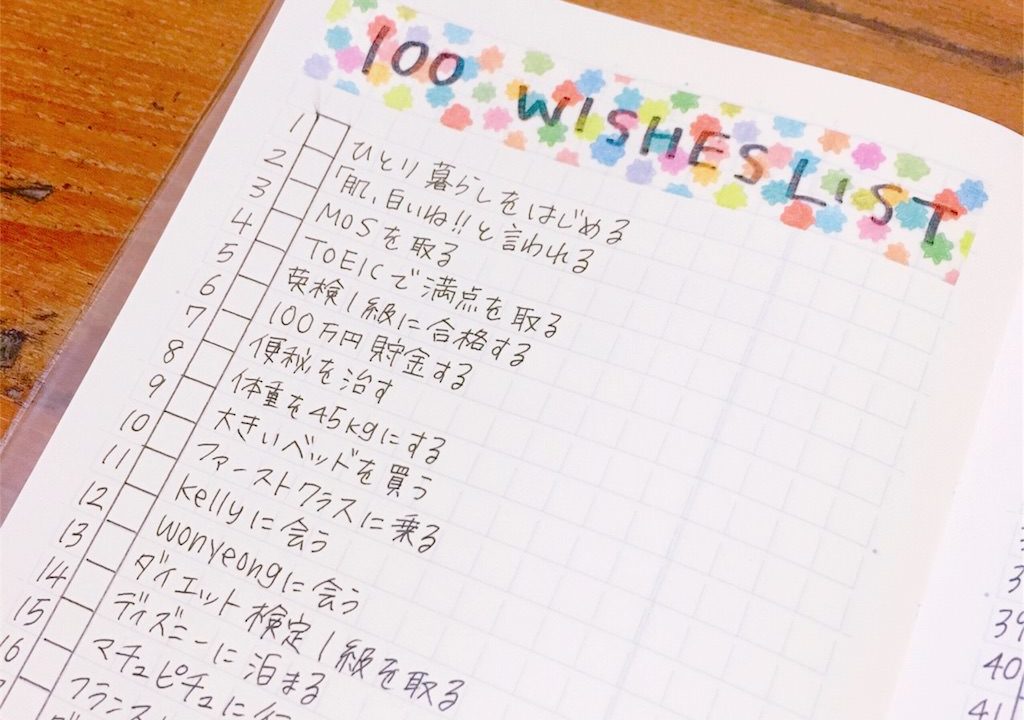 100 WISHES LIST
1 ひとり暮らしをはじめる
2 「肌、白いね!!と言われる
3 MOSを取る
4 TOEICで満点を取る
5 英検1級に合格する
6 100万円貯金する
7 便秘を治す
8 体重を45kgにする
9 大きいベッドを買う
10 ファーストクラスに乗る
11 Kellyに会う
12 Wonyeongに会う
13 ダイエット検定1級を取る
14 ディズニーに泊まる
15 マチュピチュに行
16 フランス
39
40
41